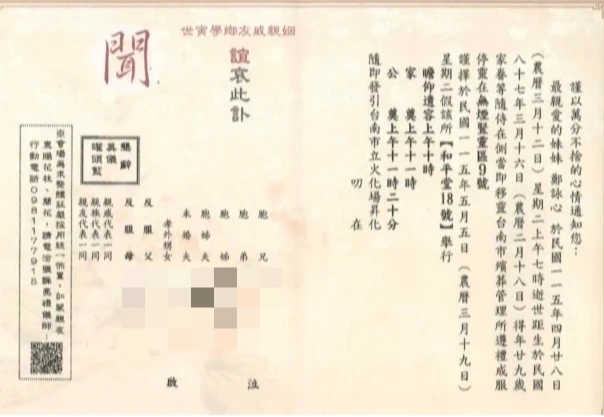 謹以萬分不捨的心情通知您：
最親愛的妹妹 鄭詠心 於民國一一五年四月廿八日
（農曆三月十二日）星期二上午七時逝世距生於民國
八十七年三月十六日（農曆二月十八日）得年廿九歲
家眷等隨侍在側當即移靈台南市殯葬管理所遵禮成服
停靈在無煙豎靈區9號
謹擇於民國一一五年五月五日（農曆三月十九日）
星期二假該所【和平堂18號】舉行
瞻仰遺容上午十時
家　奠上午十一時
公　奠上午十一時二十分
隨即發引台南市立火化場昇化
叨 在
姻親戚友鄉學寅世
誼哀此訃
聞
胞兄
胞弟
胞姊
胞姊夫
未婚夫
孝外甥女
反服父
反服母
親戚代表一同
親族代表一同
親友代表一同
泣
啟
懇辭
奠儀
罐頭籃
※會場為求整體莊嚴採用統一佈置，如蒙親友
惠賜花柱、蘭花，請電洽
禮儀師：
行動電話0981177915